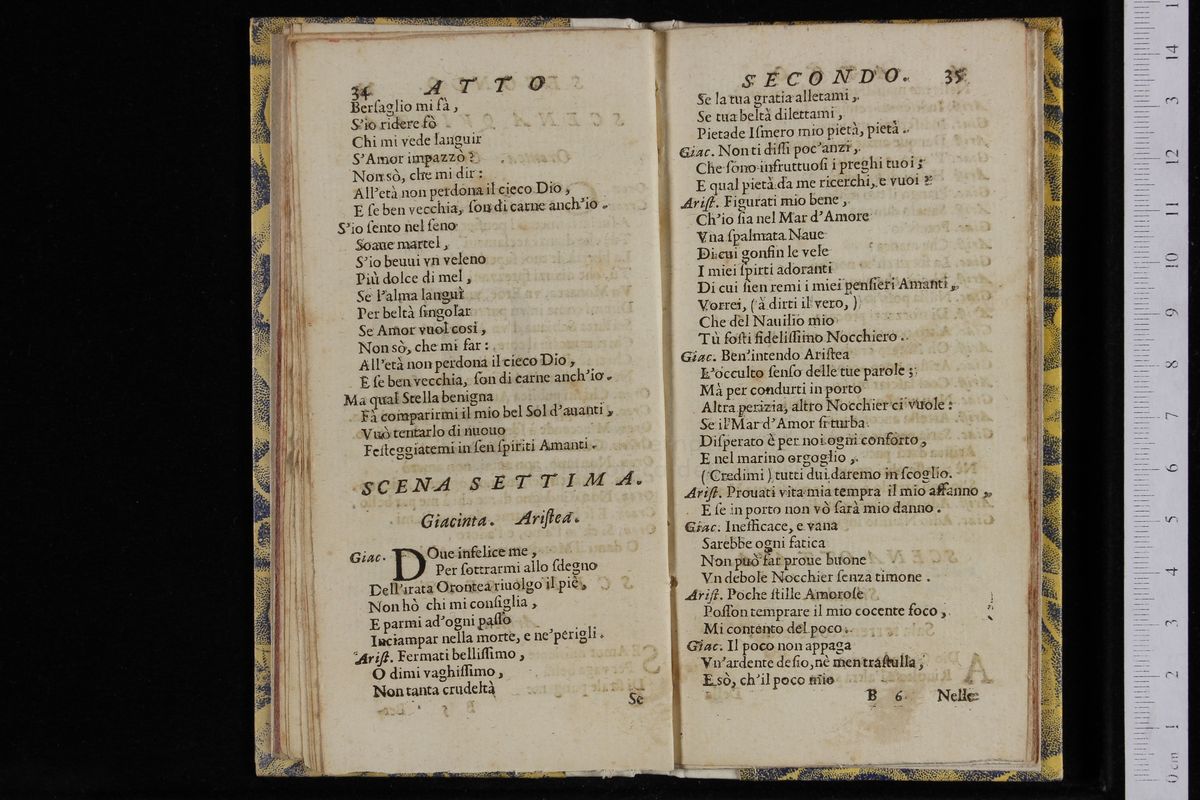 34 ATTO
Berſaglio mi fà,
S'io ridere fò
Chi mi vede languir
S'Amor impazzò?
Non sò, che mi dir:
All'età non perdona il cieco Dio,
E ſe ben vecchia, ſon di carne anch'io.
S'io ſento nel ſeno
Soaue martel,
S'io beuui vn veleno
Più dolce di mel,
Se l'alma languì
Per beltà ſingolar
Se Amor vuol cosi,
Non sò, che mi far:
All'età non perdona il cieco Dio,
E ſe ben vecchia, ſon di carne anch'io.
Ma qual Stella benigna
Fà comparirmi il mio bel Sol d'auanti,
Vuò tentarlo di nuouo
Feſteggiatemi in ſen ſpiriti Amanti.
SCENA SETTIMA.
Giacinta. Ariſtea.
Giac. DOue infelice me,
Per ſottrarmi allo ſdegno
Dell'irata Orontea riuolgo il piè,
Non hò chi mi conſiglia,
E parmi ad'ogni paſſo
Inciampar nella morte, e ne'perigli.
Ariſt. Fermati belliſſimo,
O dimi vaghiſſimo,
Non tanta crudeltà
Se
SECONDO. 35
Se la tua gratia alletami,
Se tua beltà dilettami,
Pietade Iſmero mio pietà, pietà.
Giac. Non ti diſſi poc'anzi,
Che ſono infruttuoſi i preghi tuoi;
E qual pietà da me ricerchi, e vuoi?
Ariſt. Figurati mio bene,
Ch'io ſia nel Mar d'Amore
Vna ſpalmata Naue
Di cui gonfin le vele
I miei ſpirti adoranti
Di cui ſien remi i miei penſieri Amanti,
Vorrei, (à dirti il vero,)
Che del Nauilio mio
Tù foſti fideliſſimo Nocchiero.
Giac. Ben'intendo Ariſtea
L'occulto ſenſo delle tue parole;
Mà per condurti in porto
Altra perizia, altro Nocchier ci vuole:
Se il Mar d'Amor ſi turba
Diſperato è per noi ogni conforto,
E nel marino orgoglio,
(Credimi) tutti dui daremo in ſcoglio.
Ariſt. Prouati vita mia tempra il mio affanno,
E ſe in porto non vò ſarà mio danno.
Giac. Inefficace, e vana
Sarebbe ogni fatica
Non può far proue buone
Vn debole Nocchier ſenza timone.
Ariſt. Poche ſtille Amoroſe
Poſſon temprare il mio cocente foco,
Mi contento del poco.
Giac. Il poco non appaga
Vn'ardente deſio, nè men traſtulla,
E sò, ch'il poco mio
B 6 Nelle